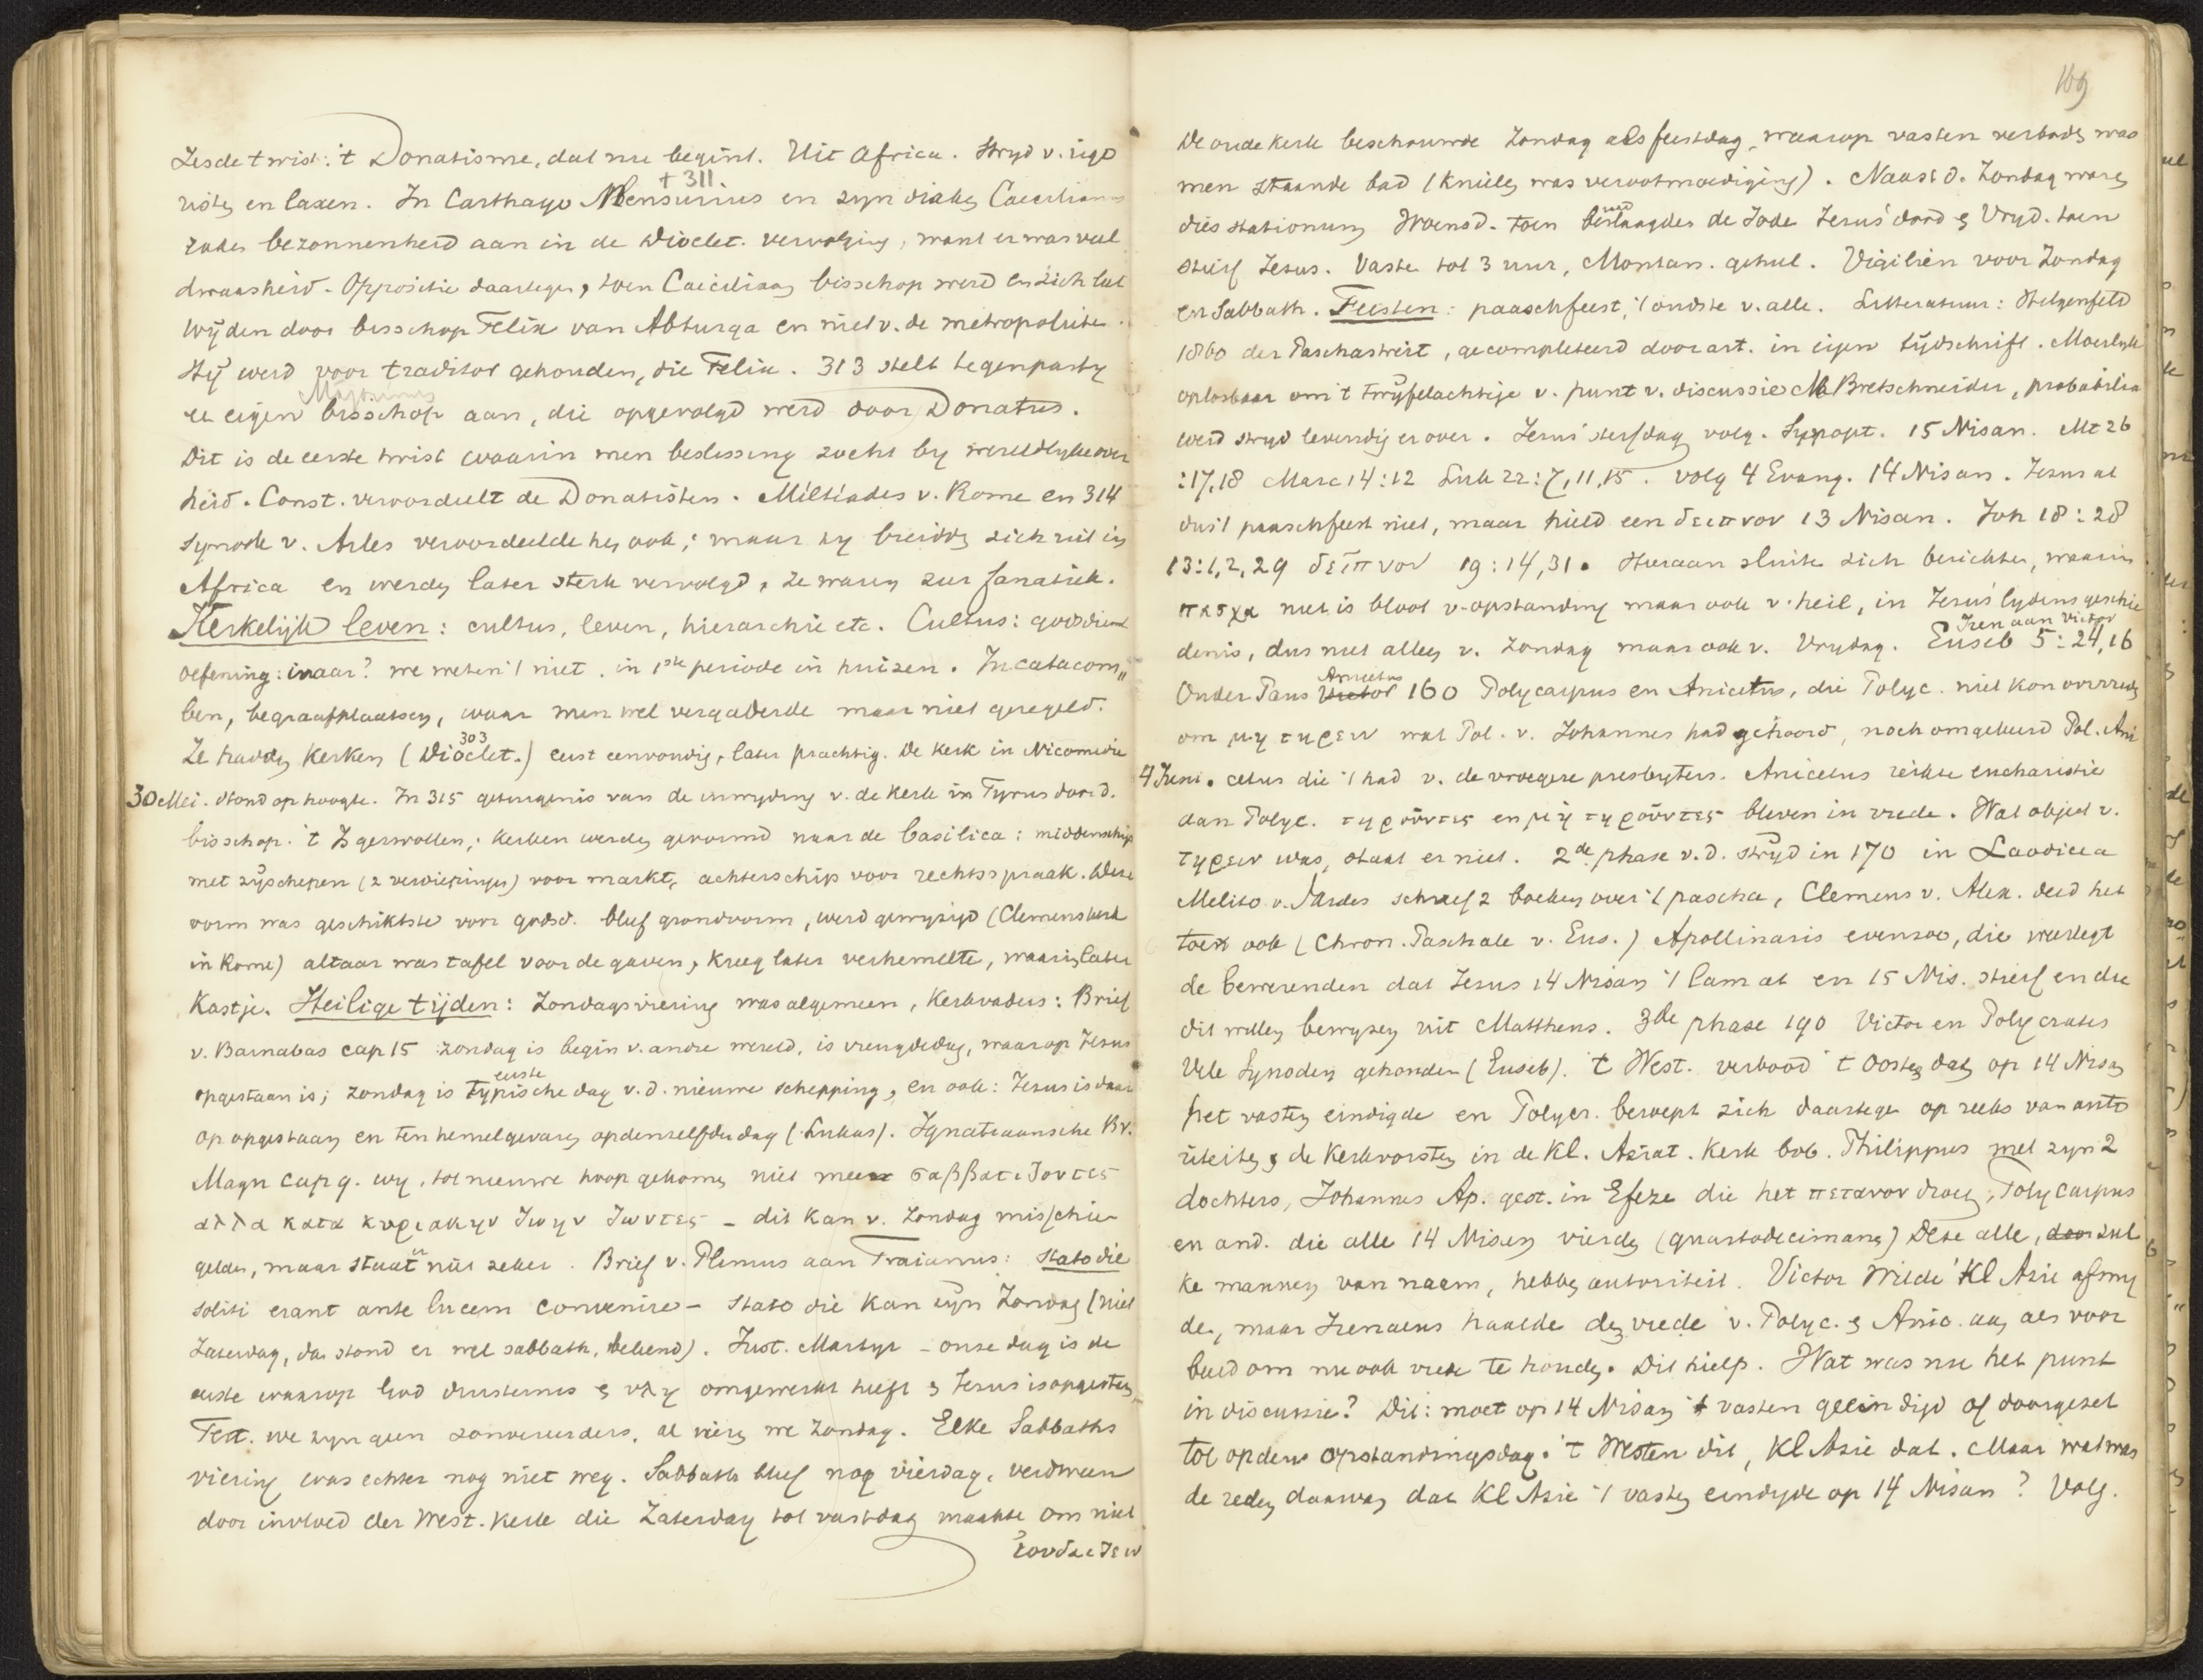 Zesde twist: 't Donatisme, dat nu begint. Uit Africa. Stryd v. rigo
risten en laxen. In Carthago Mensurius en zyn diaken Caecilianus
† 311
raden bezonnenheid aan in de Dioclet. vervolging, want er was veel
dwaasheid. Oppositie daartegen, toen Caeciliaan bisschop werd en zich liet
wijden door bisschop Felix van Abtunga en niet v. de metropoliten.
Hij werd voor traditor gehouden, die Felix. 313 stelt tegenparty
Majorinus
een eigen bisschop aan, die opgevolgd werd door Donatus.
Dit is de eerste twist waarin men beslissing zocht by wereldlyke over
heid. Const. veroordeelt de Donatisten. Miltiades v. Rome en 314
Synode v. Arles veroordeelde hen ook; maar zy breidden zich uit in
Africa en werden later sterk vervolgd, ze waren zeer fanatiek.
Kerkelijk leven: cultus, leven, hierarchie etc. Cultus: godsdienst
oefening: waar? we weten 't niet. in 1ste periode in huizen. In catacom„
ben, begraafplaatsen, waar men wel vergaderde maar niet geregeld.
303
Ze hadden kerken (Dioclet.) eerst eenvoudig, later prachtig. De kerk in Nicomedie
30 Mei. stond op hoogte. In 315 getuigenis van de inwyding v. de kerk in Tyrus door d.
bisschop. 't Is gezwollen; kerken werden gevormd naar de basilica: middenschip
met zijschepen (2 verdiepingen) voor markt, achterschip voor rechtsspraak. Deze
vorm was geschiktste voor godsd. bleef grondvorm, werd gewyzigd (Clemenskerk
in Rome) altaar was tafel voor de gaven, kreeg later verhemelte, waarin later
kastje. Heilige tijden: Zondagsviering was algemeen, Kerkvaders: Brief
v. Barnabas cap 15 zondag is begin v. andre wereld, is vreugdedag, waarop Jezus
eerste
opgestaan is; zondag is typische dag v. d. nieuwe schepping, en ook: Jezus is daar
op opgestaan en ten hemel gevaren op denzelfden dag (Lukas). Ignatiaansche Br.
Magn cap 9. wy, tot nieuwe hoop gekomen niet meer σαββατιζοντες
αλλα κατα κυριακην ζωην ζωντες – dit kan v. zondag misschien
gelden, maar staat niet zeker. Brief v. Plinius aan Traianus: stato die
soliti erant ante lucem convenire – stato die kan zijn Zondag (niet
Zaterdag, dan stond er wel sabbath, bekend). Just. Martyr – onze dag is de
eerste waarop God duisternis & υλη omgewerkt heeft & Jezus is opgestaan
Tert. we zyn geen zonvereerders, al vieren we Zondag. Elke Sabbaths
viering was echter nog niet weg. Sabbath bleef nog vierdag, verdween
door invloed der West. kerk die Zaterdag tot vastdag maakte om niet
ιουδαιζειν
169
De oude kerk beschouwde Zondag als feestdag, waarop vasten verboden was
men staande bad (knielen was verootmoediging). Naast d. Zondag waren
dies stationum Woensd. toen de Jode Jezus' dood & Vryd. toen
stierf Jezus. Vaste tot 3 uur, Montan. geheel. Vigiliën voor Zondag
en Sabbath. Feesten: paaschfeest, 't oudste v. alle. Litteratuur: Hilgenfeld
1860 der Paschastreit, gecompleteerd door art. in eigen tijdschrift. Moeilyk
oplosbaar om 't twijfelachtige v. punt v. discussie Bretschneider, probabilia
werd stryd levendig erover. Jezus' sterfdag volg. Synopt. 15 Nisan. Mt 26
:17,18 Marc 14:12 Luk 22:7,11,15. volg 4 Evang. 14 Nisan. Jezus at
dus 't paaschfeest niet, maar hield een δειπνον 13 Nisan. Joh 18:28
13:1,2,29 δεῖπνον 19:14,31. Hieraan sluiten zich berichten, waarin
πασχα niet is bloot v. opstanding maar ook v. heil, in Jezus' lydens geschie
Iren aan Victor
denis, dus niet alleen v. Zondag maar ook v. Vrydag. Euseb 5:24,16
Anicetus
Onder Paus Victor 160 Polycarpus en Anicetus, die Polyc. niet kon overreden
om μη τηρειν wat Pol. v. Johannes had gehoord, noch omgekeerd Pol. Ani
4 Juni. cetus die 't had v. de vroegere presbyters. Anicetus reikte eucharistie
aan Polyc. τηροῦντες en μὴ τηροῦντες bleven in vrede. Wat object v.
τηρειν was, staat er niet. 2de phase v. d. stryd in 170 in Laodicea
Melito v. Sardes schreef 2 boeken over 't pascha, Clemens v. Alex. deed het
toen ook (Chron. Paschale v. Eus.) Apollinaris evenzoo, die weerlegt
de bewerenden dat Jezus 14 Nisan 't lam at en 15 Nis. stierf en die
dit willen bewyzen uit Mattheus. 3de phase 190 Victor en Polycrates
Vele Synoden gehouden (Euseb). 't West. verbood 't Oosten dat op 14 Nisan
het vasten eindigde en Polycr. beroept zich daartegen op reeks van auto
riteiten & de kerkvorsten in de Kl. Aziat. kerk bvb. Philippus met zyn 2
dochters, Johannes Ap. gest. in Efeze die het πεταλον droeg, Polycarpus
en and. die alle 14 Nisan vierden (quartodecimanen) Deze alle, door zul
ke mannen van naam, hebben autoriteit. Victor wilde Kl Azie afsny
den, maar Irenaeus haalde den vrede v. Polyc. & Anic. aan als voor
beeld om nu ook vrede te houden. Dit hielp. Wat was nu het punt
in discussie? Dit: moet op 14 Nisan 't vasten geëindigd of doorgezet
tot op den opstandingsdag. 't Westen dit, Kl Azie dat. Maar wat was
de reden daarvan dat Kl Azie 't vasten eindigde op 14 Nisan? Volg.